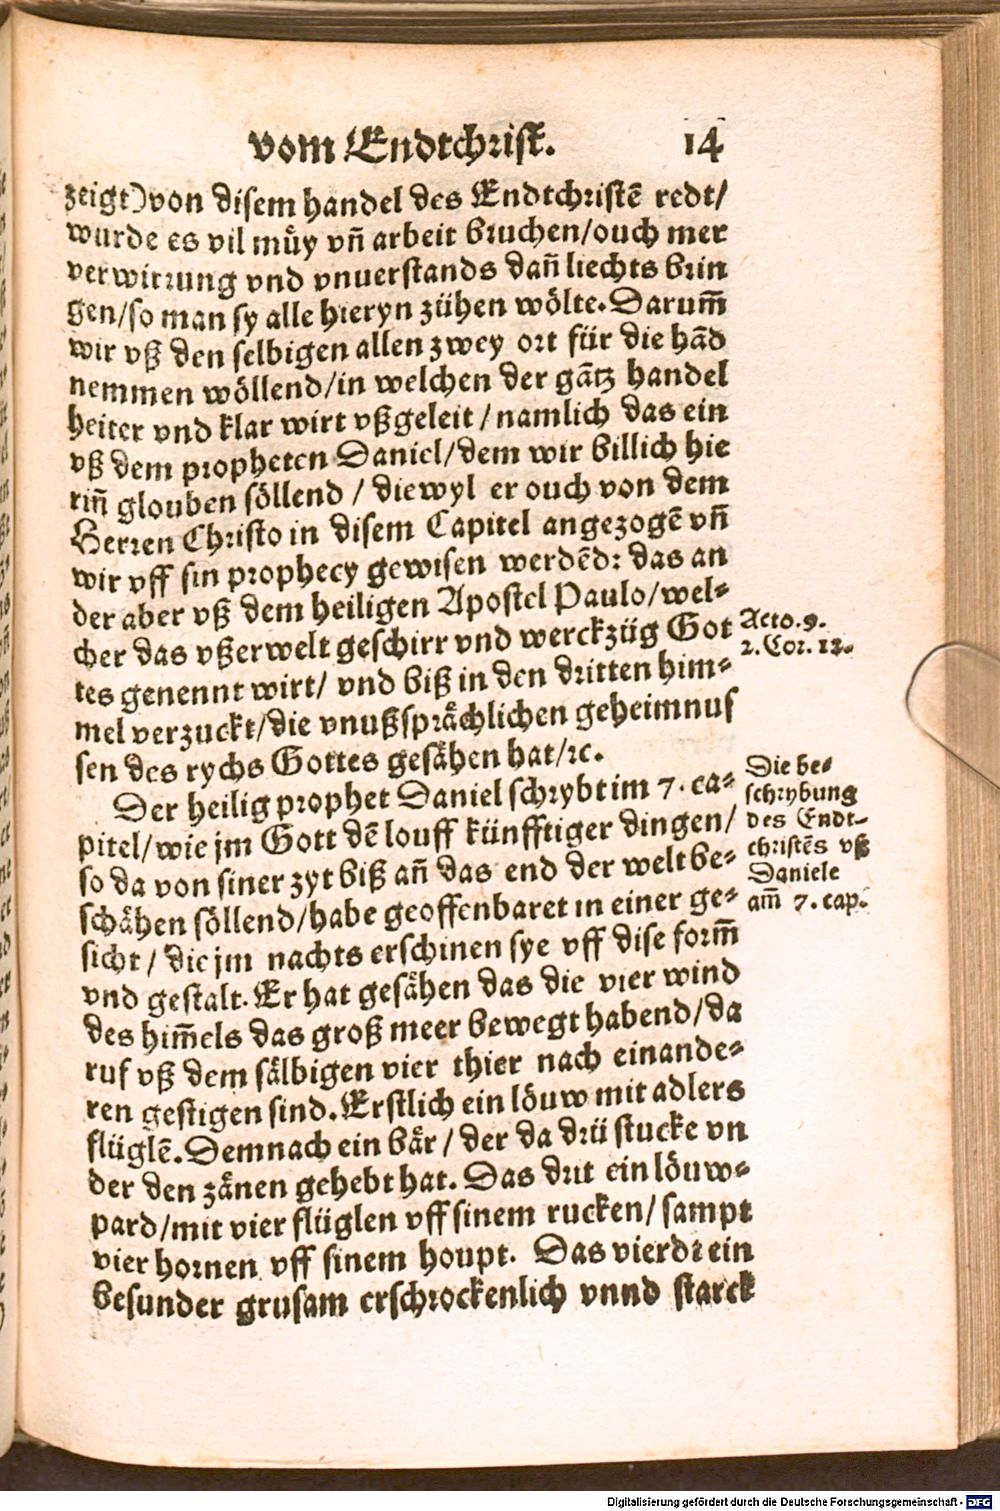 vom Endtchrist. 14
zeigt)von disem handel des Endtchristē redt/
wurde es vil muͤy vñ arbeit bruchen/ouch mer
verwirrung vnd vnuerstands dañ liechts brin
gen/so man sy alle hieryn zühen wölte. Darum̄
wir vß den selbigen allen zwey ort für die hād
nemmen wöllend/in welchen der gātz handel
heiter vnd klar wirt vßgeleit/namlich das ein
vß dem propheten Daniel/dem wir billich hie
riñ glouben söllend/diewyl er ouch von dem
Herren Christo in disem Capitel angezogē vñ
wir vff sin prophecy gewisen werdēd: das an
der aber vß dem heiligen Apostel Paulo/wel-
cher das vßerwelt geschirr vnd werckzüg Got
Acto.9.
2.Cor.12.
tes genennt wirt/ vnd biß in den dritten him-
mel verzuckt/die vnußsprächlichen geheimnus
sen des rychs Gottes gesähen hat/ꝛc.
Der heilig prophet Daniel schrybt im 7. ca-
pitel/wie jm Gott dē louff künfftiger dingen/
so da von siner zyt biß añ das end der welt be-
schähen söllend/habe geoffenbaret in einer ge-
sicht/die jm nachts erschinen sye vff dise form̄
Die be-
schrybung
des Endt-
christēs vß
Daniele
am̄ 7. cap.
vnd gestalt. Er hat gesähen das die vier wind
des him̄els das groß meer bewegt habend/da
ruf vß dem sälbigen vier thier nach einande-
ren gestigen sind. Erstlich ein löuw mit adlers
flüglē. Demnach ein bär/der da drü stucke vn
der den zänen gehebt hat. Das drit ein löuw-
pard/mit vier flüglen vff sinem rucken/sampt
vier hornen vff sinem houpt. Das vierdt ein
besunder grusam erschrockenlich vnnd starck
Digitalisierung gefördert durch die Deutsche Forschungsgemeinschaft - DFG